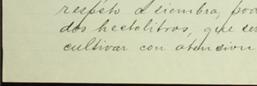 respéto a siembra, pod
dos hectolitros, que se
cultivar con atencion